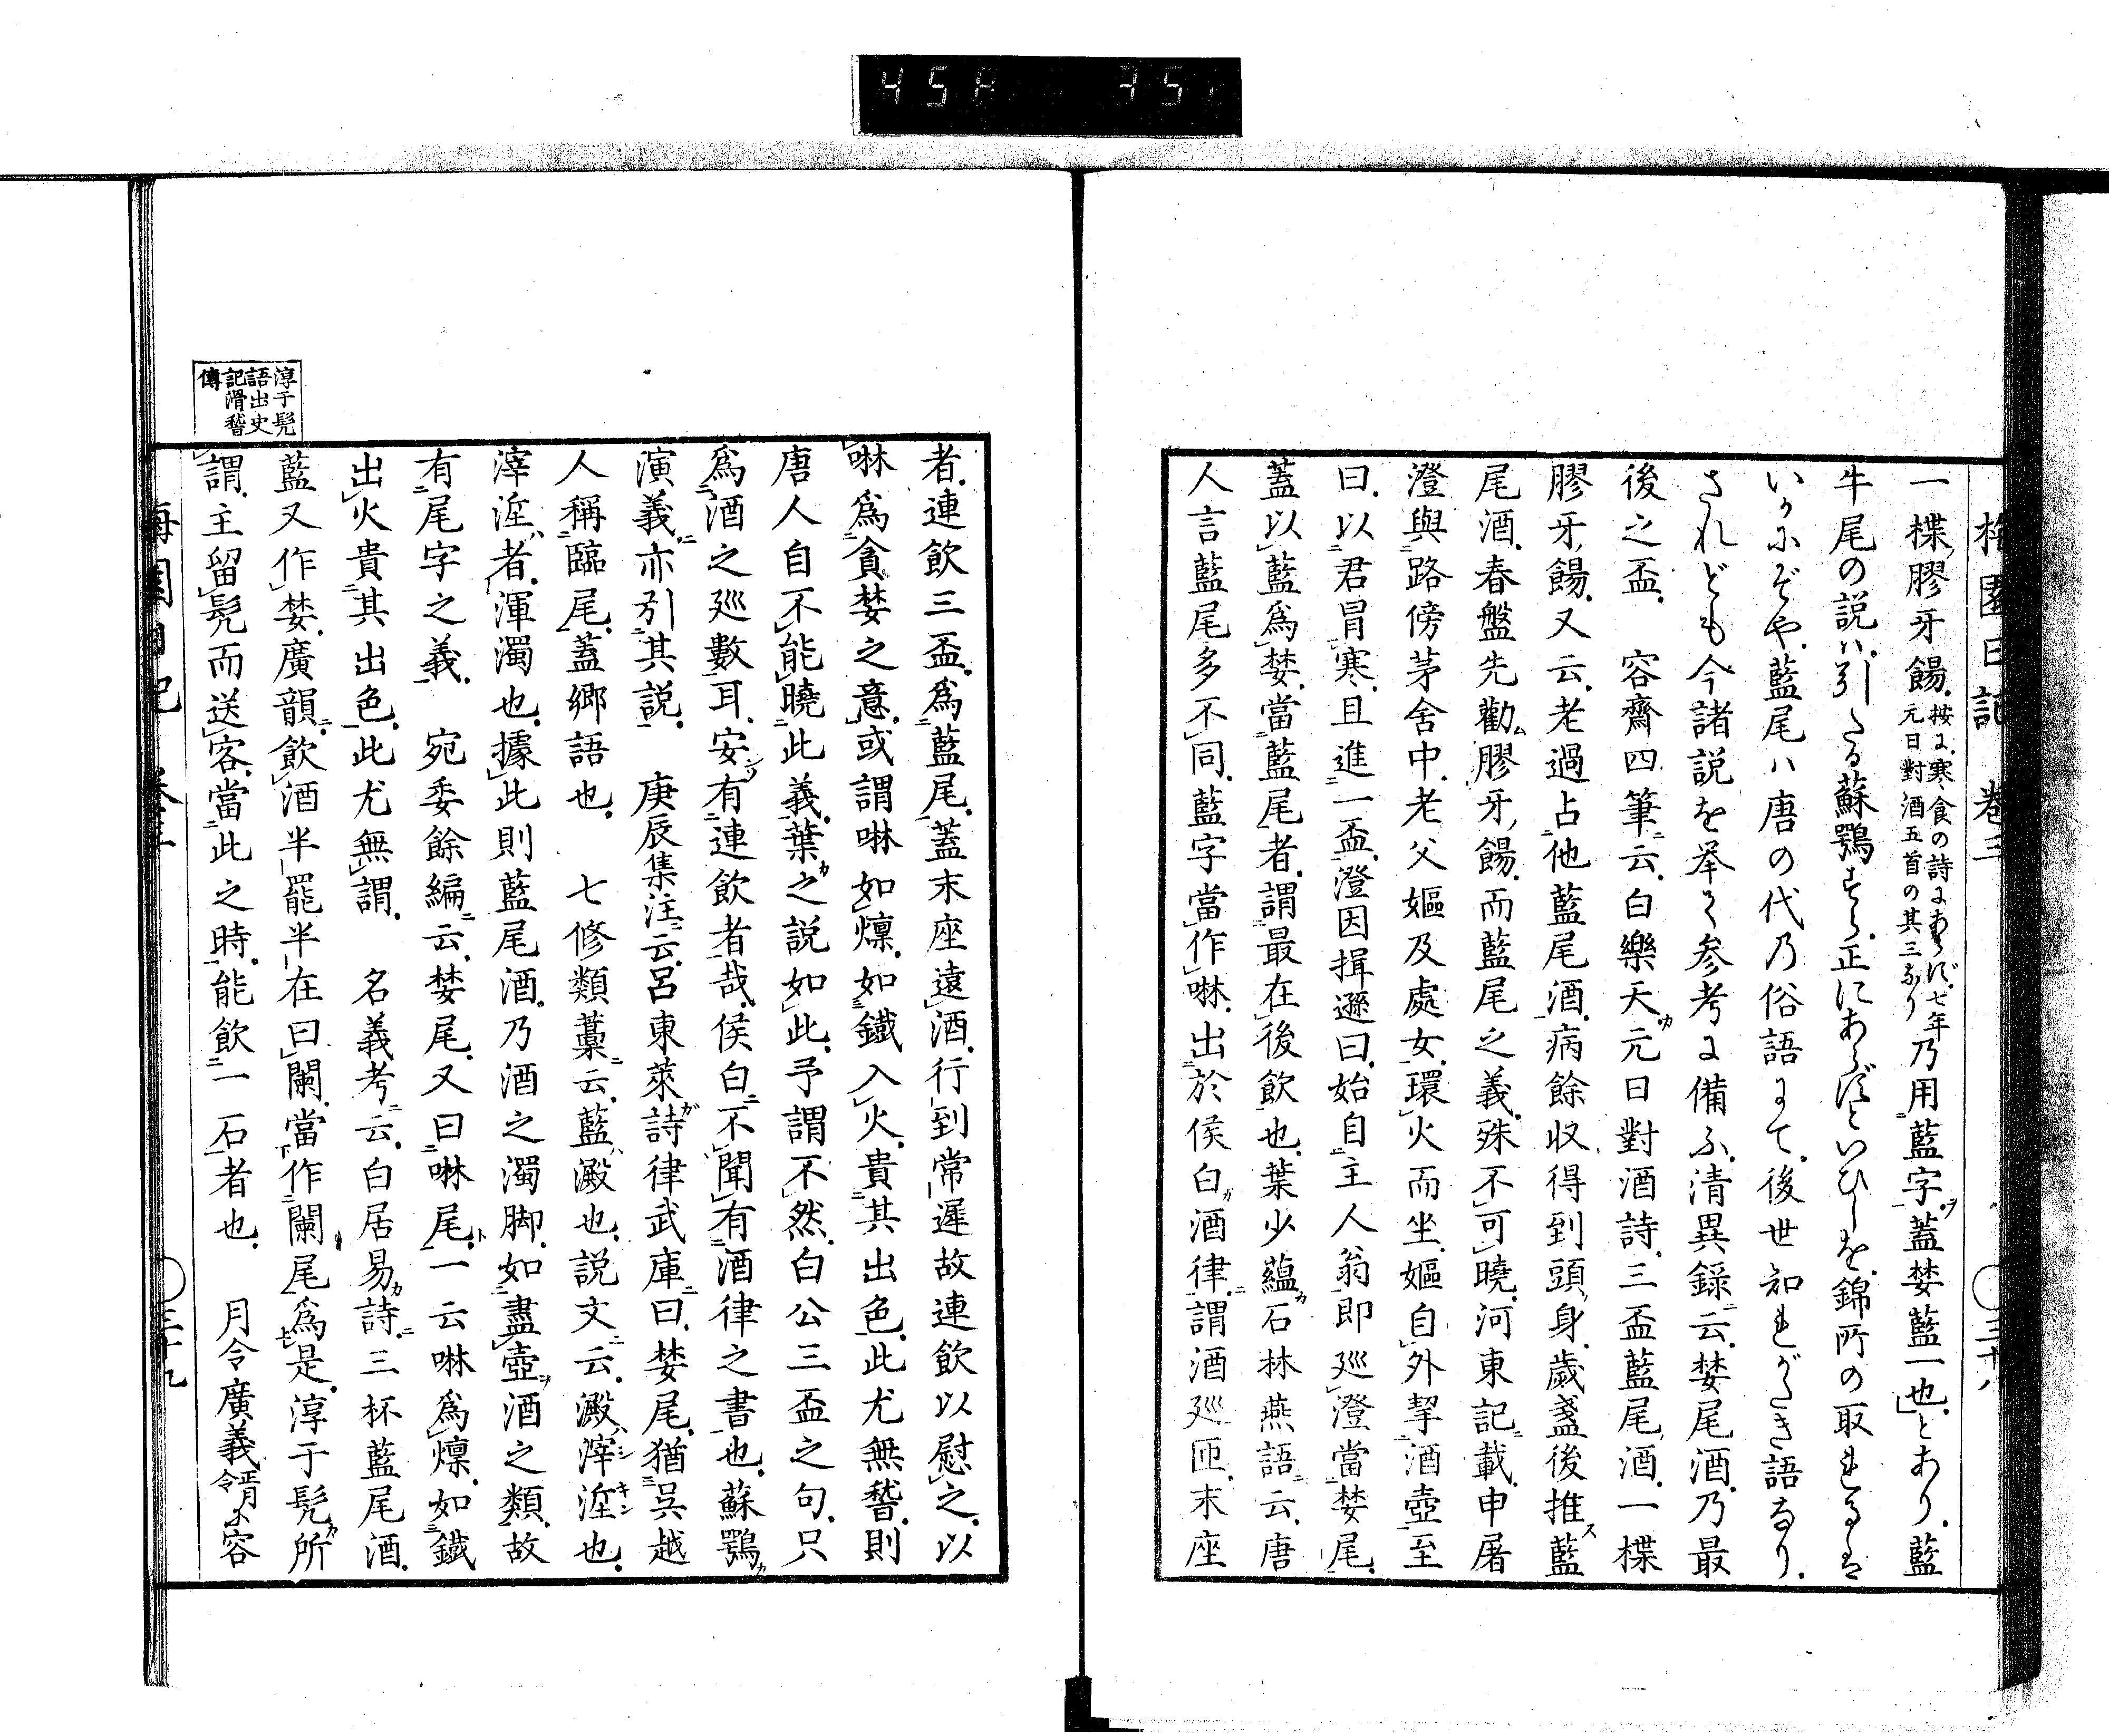 梅園日記 卷三 ○三十八
一楪、膠牙餳。按に、寒食の詩にあらず、七年元日對酒五首の其三なり乃用藍字。蓋婪藍一也。とあり。藍
牛尾の説は、引たる蘇鶚すら、正にあらずといひしを、錦所の取れるは
いかにぞや。藍尾ハ唐の代乃俗語にて、後世知れがたき語なり。
されども今諸説を举て参考に備ふ。清異録云。婪尾酒。乃最
後之盃。 容齋四筆云。白樂天元日對酒詩。三盃藍尾酒。一楪
膠牙餳。又云。老過占他藍尾酒。病餘收得到頭身。歲盞後推藍
尾酒。春盤先勸膠牙餳。而藍尾之義。殊不可曉。河東記載。申屠
澄與路傍茅舍中。老父嫗及處女。環火而坐。嫗自外挈酒壺至
曰。以君冒寒。且進一盃。澄因揖遜曰。始自主人翁。即巡澄當婪尾。
蓋以藍爲婪。當藍尾者。謂最在後飲也。葉少蘊石林燕語云。唐
人言藍尾多不同。藍字當作啉。出於侯白酒律。謂酒巡匝。末座
者。連飲三盃。爲藍尾。蓋末座遠。酒行到常遲故連飲以慰之。以
啉爲貪婪之意。或謂啉如燣。如鐵入火。貴其出色。此尤無稽。則
唐人自不能曉此義。葉之説如此。予謂不然。白公三盃之句。只
爲酒之巡數耳。安有連飲者哉。侯白不聞有酒律之書也。蘇鶚
演義亦引其説。 庚辰集注云。呂東萊詩律武庫曰。婪尾。猶呉越
人稱臨尾。蓋鄉語也。 七修類藁云。藍澱也。説文云。澱滓淫也。
滓淫者。渾濁也。據此則藍尾酒。乃酒之濁脚。如盡壺酒之類。故
有尾字之義。 宛委餘編云。婪尾。又曰啉尾。一云啉爲燣。如鐵
出火貴其出色。此尤無謂。 名義考云。白居易詩。三杯藍尾酒。
藍又作婪。廣韻。飲酒半罷半在曰闌。當作闌尾爲是。淳于髡所
謂。主留髡而送客。當此之時。能飲一石者也。 月令廣義令容
淳于髡
語出史
記滑稽
傳
梅園日記 卷三 ○三十九